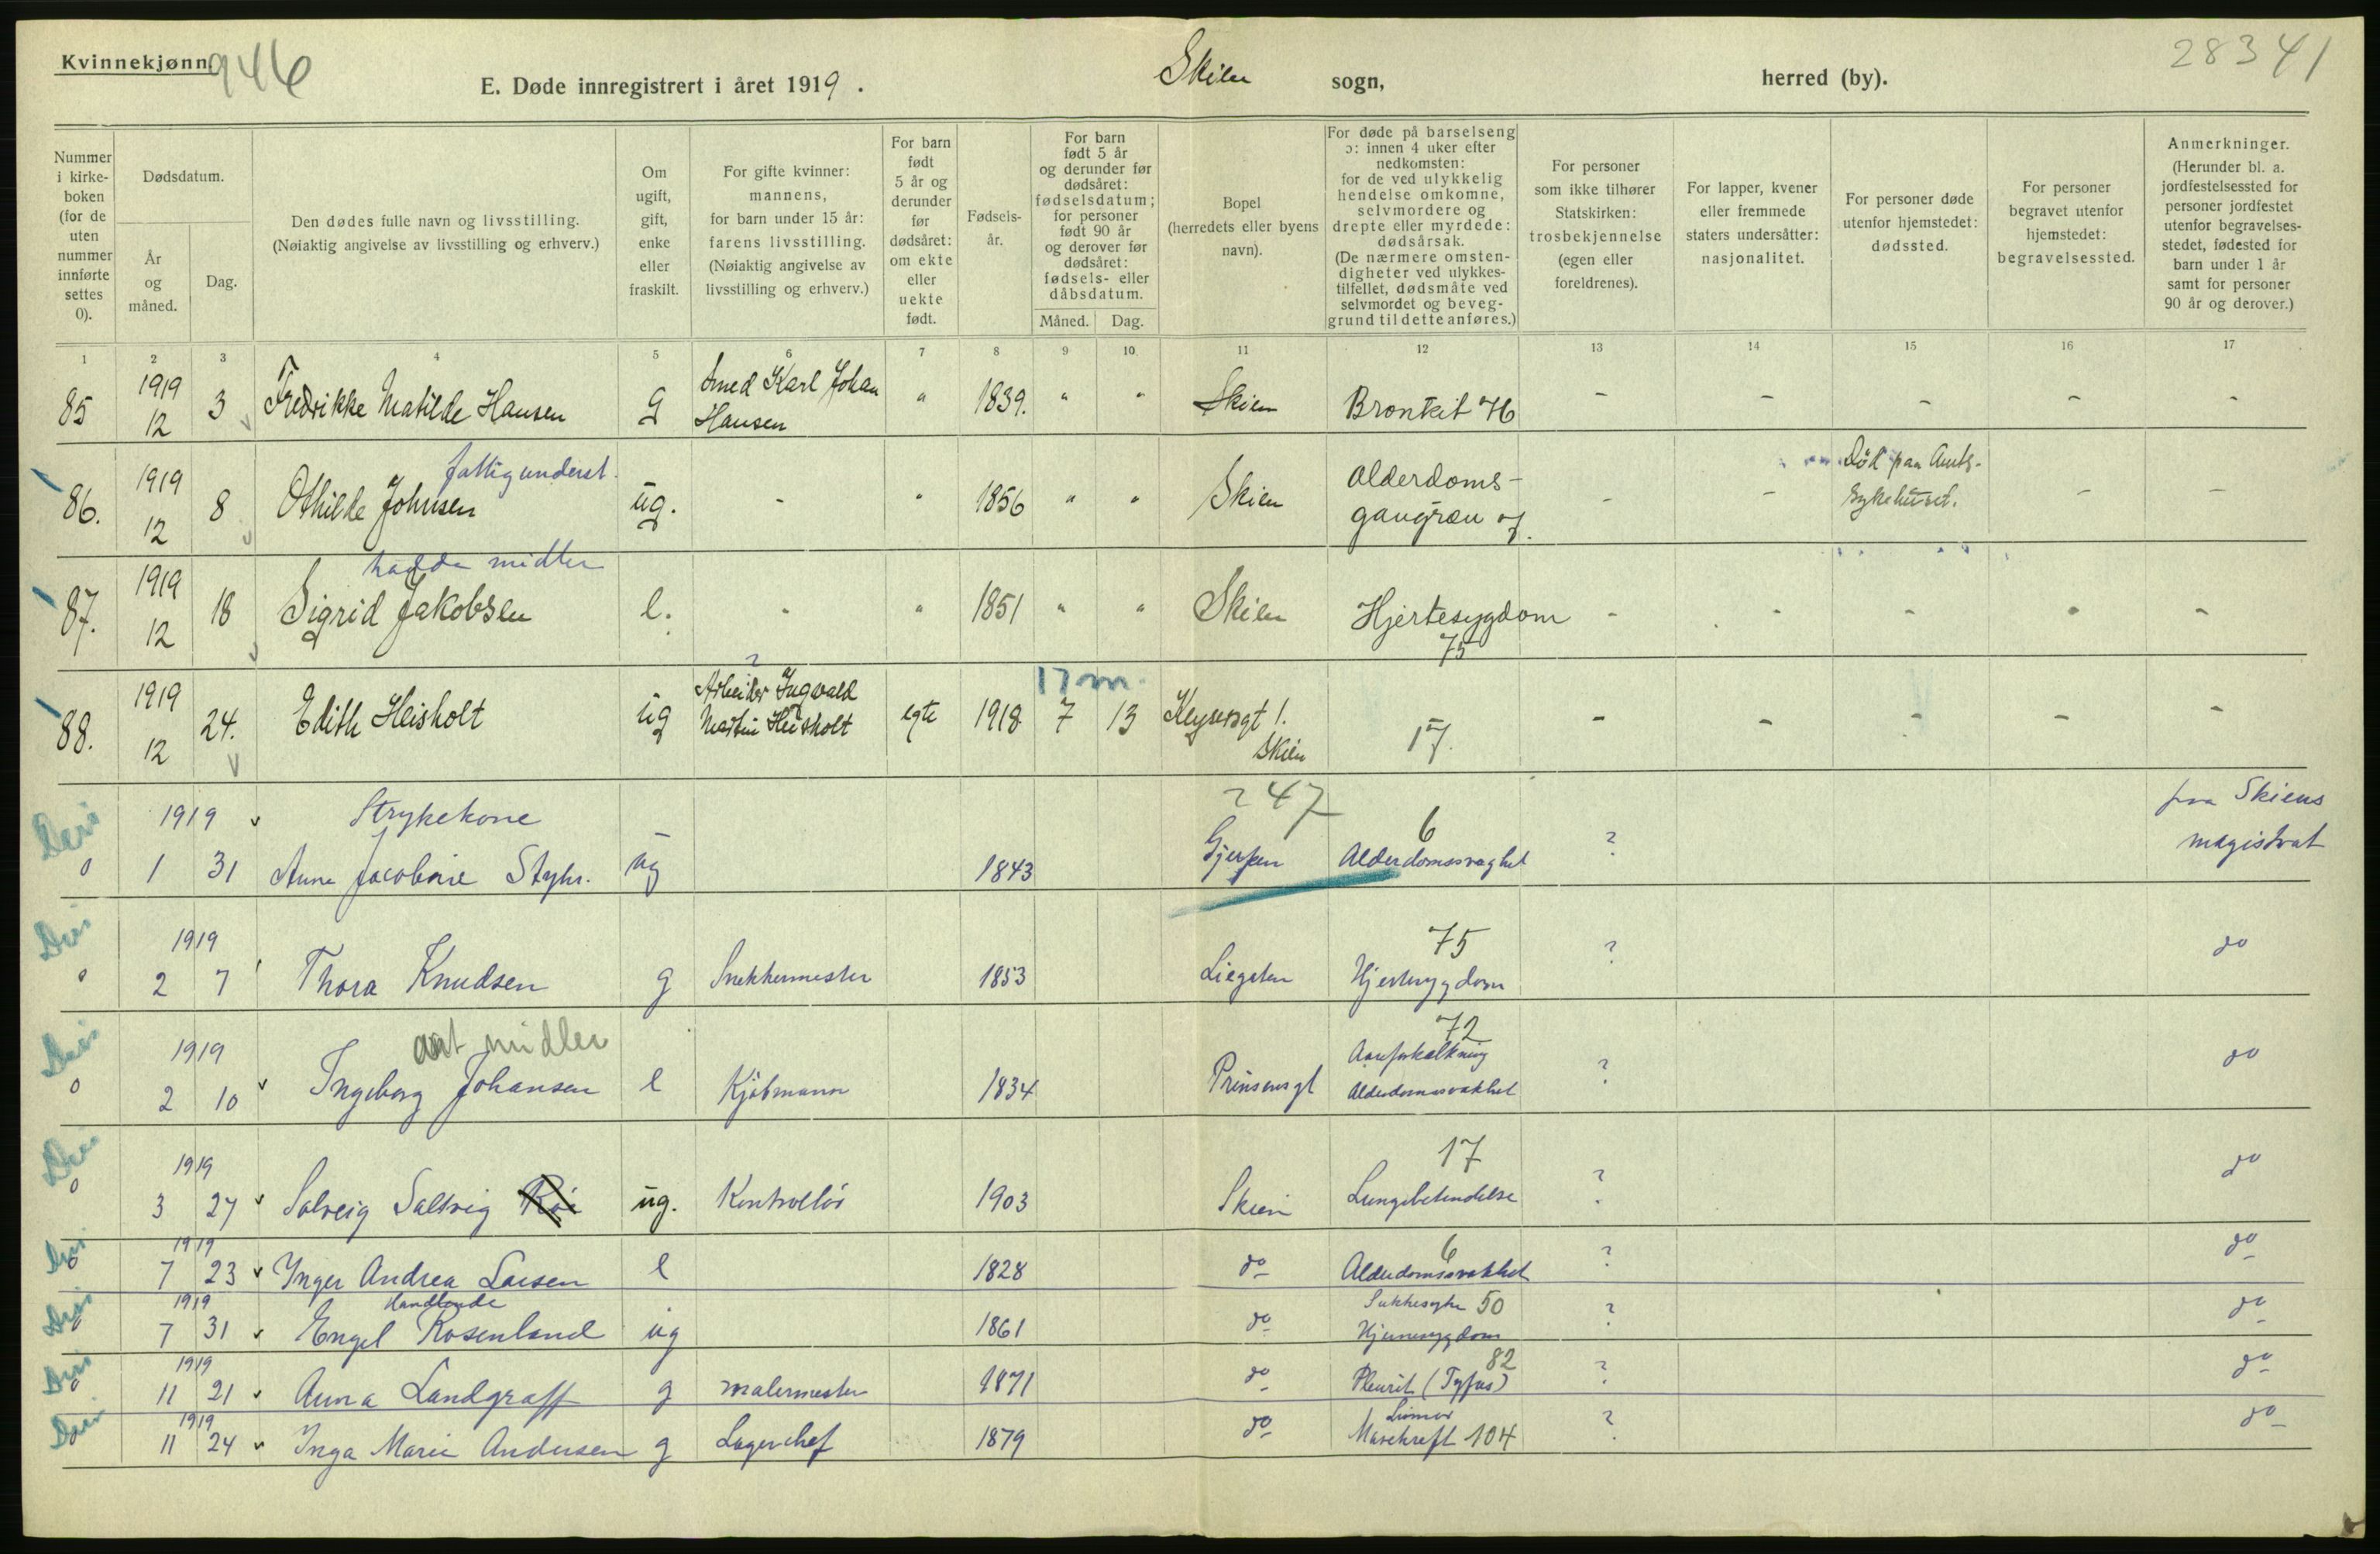 Kvinnekjønn.
946
E. Døde innregistrert i året 1919.
Skien sogn,
herred (by).
28341
Nummer i kirkeboken (for de uten nummer innførte settes 0).
Dødsdatum.
År og måned.
Dag.
Den dødes fulle navn og livsstilling.
(Nøiaktig angivelse av livsstilling og erhverv.)
Om ugift, gift, enke eller fraskilt.
For gifte kvinner: mannens, for barn under 15 år: farens livsstilling.
(Nøiaktig angivelse av livsstilling og erhverv.)
For barn født 5 år og derunder før dødsåret: om ekte eller uekte født.
Fødselsår.
For barn født 5 år og derunder før dødsåret: fødselsdatum; for personer født 90 år og derover før dødsåret: fødsels- eller dåbsdatum.
Måned.
Dag.
Bopel (herredets eller byens navn).
For døde på barselseng ɔ: innen 4 uker efter nedkomsten: for de ved ulykkelig hendelse omkomne, selvmordere og drepte eller myrdede: dødsårsak.
(De nærmere omstendigheter ved ulykkestilfellet, dødsmåte ved selvmordet og beveggrund til dette anføres.)
For personer som ikke tilhører Statskirken: trosbekjennelse (egen eller foreldrenes).
For lapper, kvener eller fremmede staters undersåtter: nasjonalitet.
For personer døde utenfor hjemstedet: dødssted.
For personer begravet utenfor hjemstedet: begravelsessted.
Anmerkninger.
(Herunder bl. a. jordfestelsessted for personer jordfestet utenfor begravelsesstedet, fødested for barn under 1 år samt for personer 90 år og derover.)
1 2 3 4 5 6 7 8 9 10 11 12 13 14 15 16 17
85 1919 12 3 Fredrikke Matilde Hansen g Smed Karl Johan Hansen " 1839. " " Skien Bronkit 76 - - - - -
86. 1919 12 8 fattigunderst. Othilde Johnsen ug. - " 1856 " " Skien Alderdoms-gangræn - - Död paa Amts-sykehuset. - -
87. 1919 12 18 hadde midler Sigrid Jakobsen e. - " 1851 " " Skien Hjertesygdom 75 - - - - -
88. 1919 12 24. Edith Heisholt ug Arbeider Ingvald Martin Heisholt egte 1918 17 m. 7 13 Keysersgt 1. Skien 17. - - - - -
0 1919 1 31 Strykekone Anna Jacobine Styhr. ug 1843 247 Gjerpen 6 Alderdomssvaghet ? fra Skiens magistrat
0 1919 2 7 Thora Knudsen g Snekkermester 1853 Liegaten 75 Hjertesygdom ? do
0 1919 2 10 ant midler Ingeborg Johansen e Kjöbmann 1834 Prinsensgt 72 Aareforkalkning Alderdomssvakhet ? do
0 1919 3 27 Solveig Saltvig ug. Kontrollör 1903 Skien 17 Lungebetendelse ? do
0 1919 7 23 Inger Andrea Larsen e 1828 do 6 Alderdomssvakhet ? do
0 1919 7 31 Handlende Engel Rosenlund ug 1861 do Sukkersyke 50 Hjernesygdom ? do
0 1919 11 21 Anna Landgraff g malermester 1871 do 82 Pleurit (Tyfus) ? do
0 1919 11 24 Inga Marie Andersen g Lagerchef 1879 do Mavekreft 104 ? do